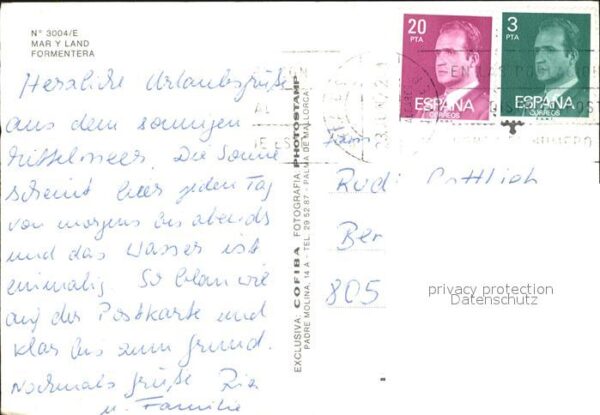 Nº 3004/E
MAR Y LAND
FORMENTERA
Herzliche Urlaubsgrüße
aus dem sonnigen
Mittelmeer. Die Sonne
scheint hier jeden Tag
von morgens bis abends
und das Wasser ist
einmalig. So blau wie
auf der Postkarte und
klar bis zum Grund.
Nochmals Grüße Ria
u. Familie
EXCLUSIVA: COFIBA FOTOGRAFIA PHOTOSTAMP
PADRE MOLINA, 14 A - TEL. 29 52 87 - PALMA DE MALLORCA
20
PTA
ESPAÑA
CORREOS
3
PTA
ESPAÑA
CORREOS
Fam
Rudi Gottlieb
Ber
805
privacy protection
Datenschutz